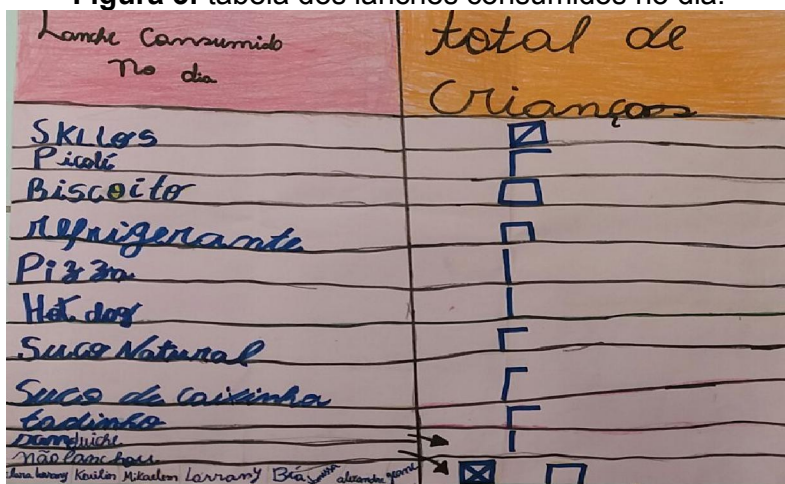 Figura 3. tabela dos lanches consumidos no dia.
Lanche Consumido
no dia
total de
Crianças
SKilos
Picolé
Biscoito
refrigerante
Pizza
Hot dog
Suco Natural
Suco de Caixinha
todinho
Sanduiche
não lanchou
Kauilin Mikaelem Larrany Bia alexandre